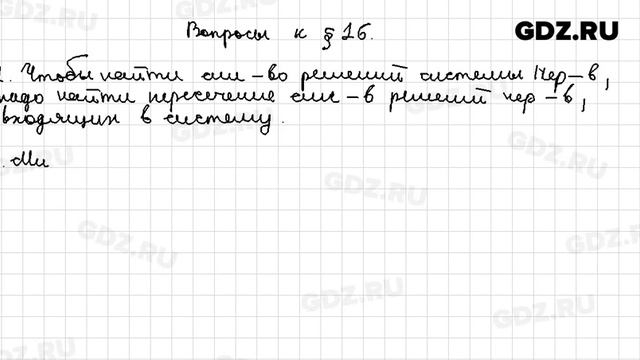 GDZ.RU
Вопросы к § 16.
1. Чтобы найти мн-во решений системы нер-в,
надо найти пересечение мн-в решений нер-в,
входящих в систему.
. Мн
GDZ.RU
GDZ.RU
GDZ.RU
GDZ.RU
GDZ.RU
GDZ.RU
GDZ.RU
GDZ.RU
GDZ.RU
GDZ.RU